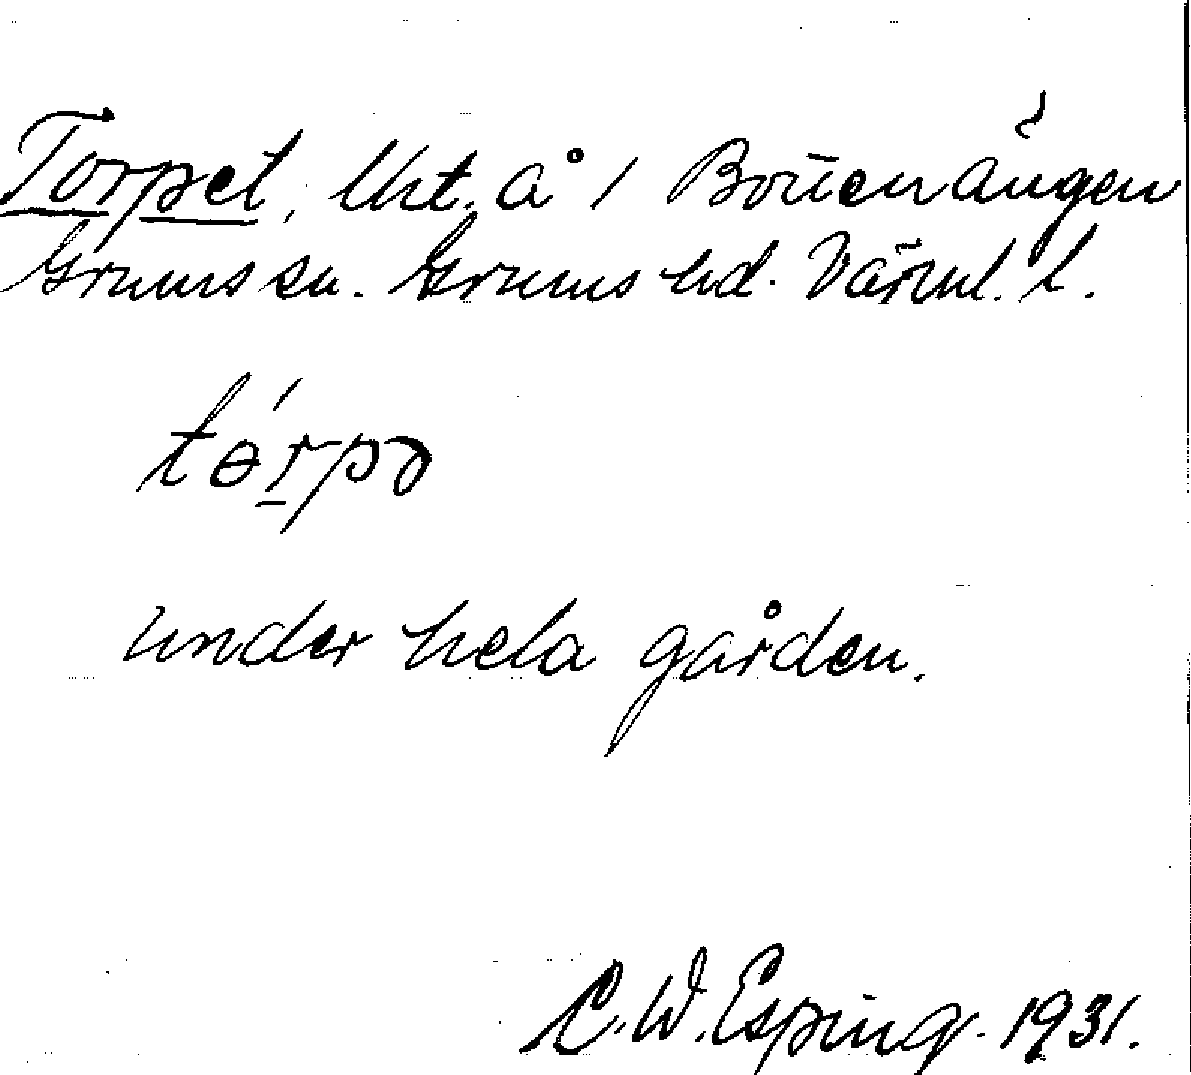 Torpet, lht. å 1 Botten ängen
Grums sn. Grums hd. Värml. l.
tɵ́rpə
under hela gården.
C. W. Esping. 1931.